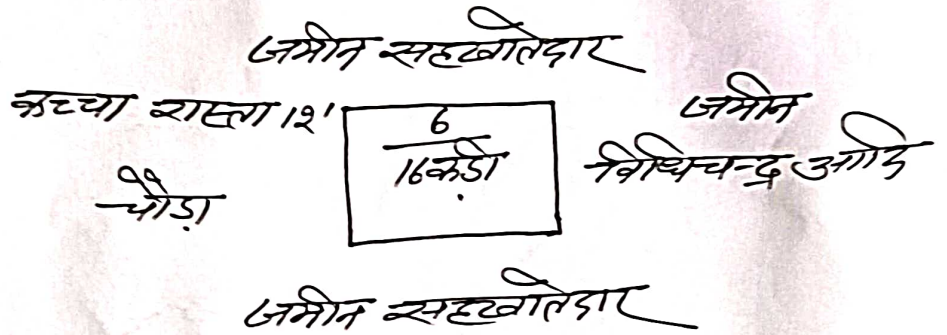 जमीन सहखातेदार
कच्चा रास्ता 12'
चौड़ा
6
16 कड़ी
जमीन
विधिचन्द्र आदि
जमीन सहखातेदार